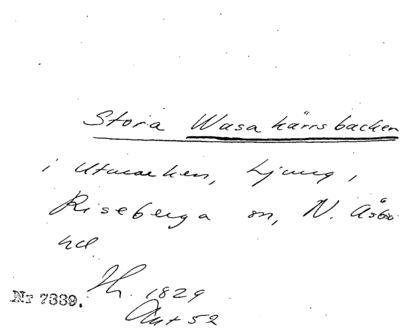 Stora Wasakärrsbacken
i Utmarken, Ljung,
Riseberga sn, N. Åsbo
hd
Th. 1829
Nr 7339.
Akt 52